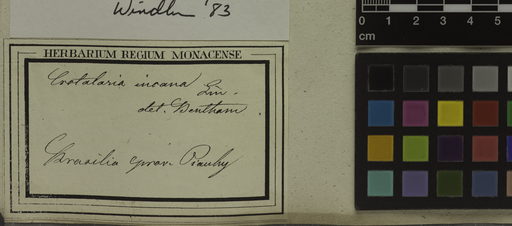 Windler '83
HERBARIUM REGIUM MONACENSE
Crotalaria incana Lin.
det. Bentham
Brasilia prov. Piauhy
0 1 2 3 4 5
cm